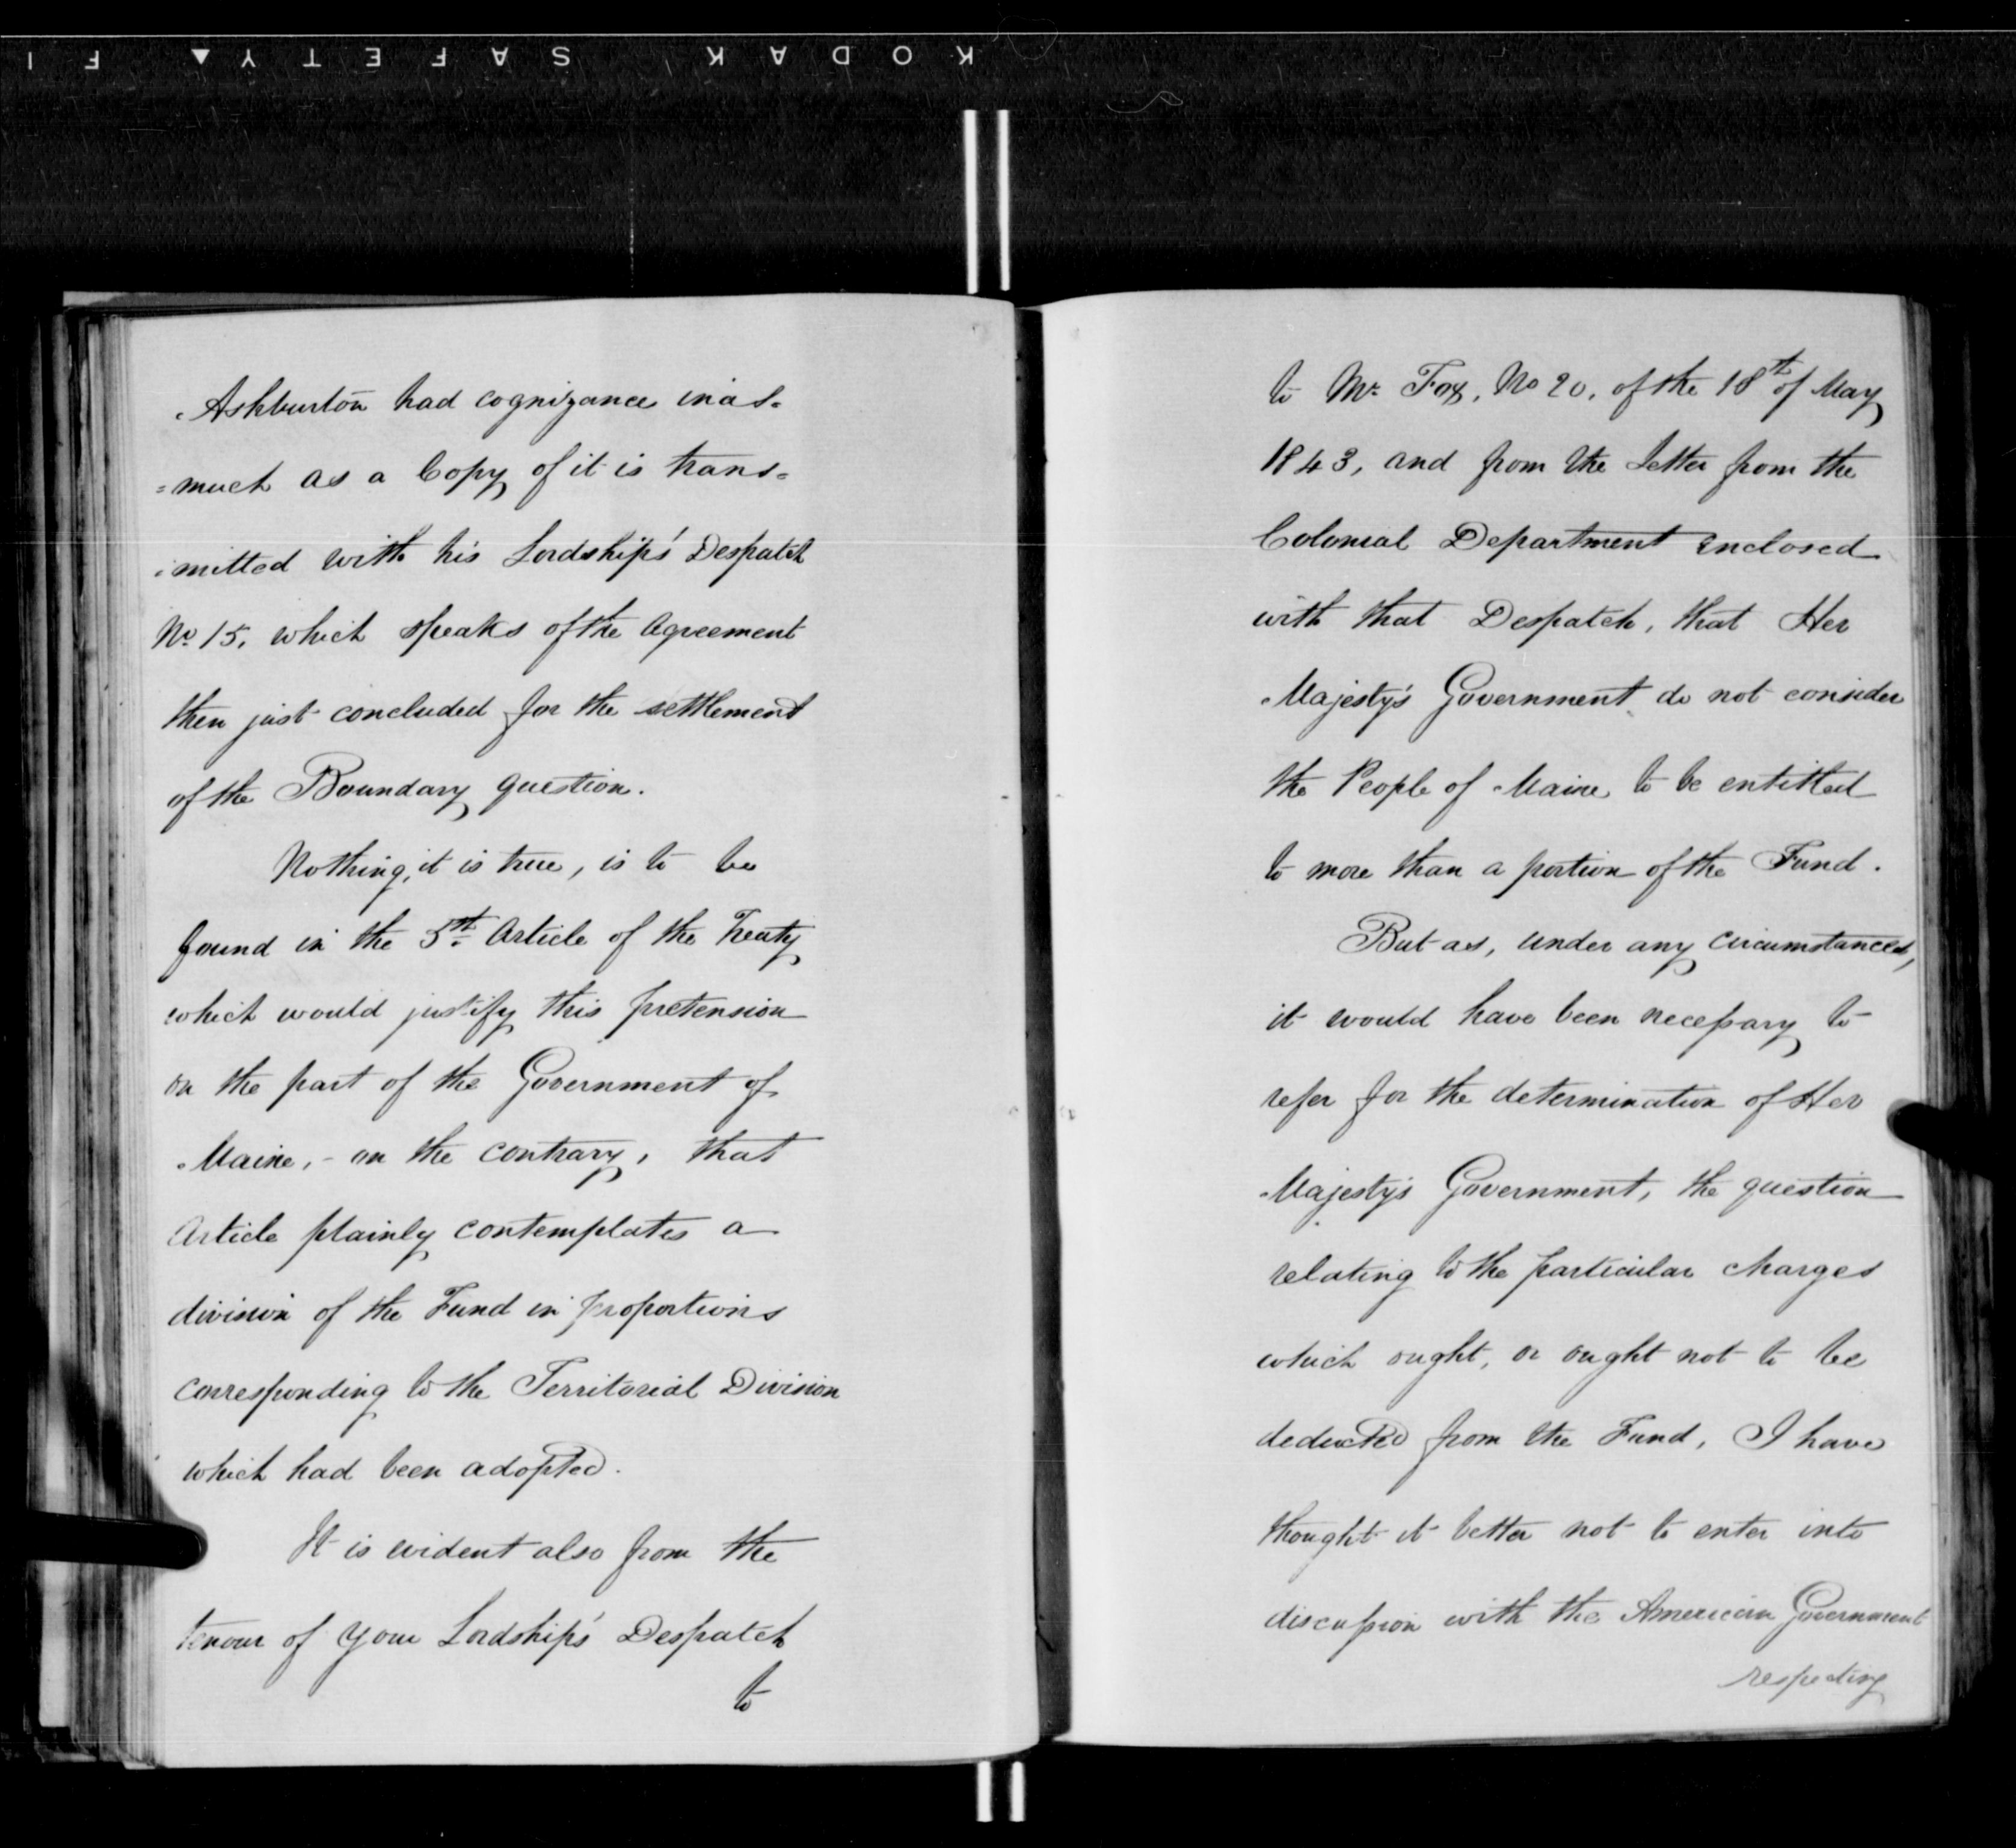 KODAK SAFETY ▲ F I
Ashburton had cognizance inas=
=much as a Copy of it is trans=
mitted with his Lordship's Despatch
No. 15, which speaks of the Agreement
then just concluded for the settlement
of the Boundary question.
Nothing, it is true, is to be
found in the 5th Article of the Treaty
which would justify this pretension
on the part of the Government of
Maine, - on the contrary, that
Article plainly contemplates a
division of the Fund in proportions
corresponding to the Territorial Division
which had been adopted.
It is evident also from the
tenour of your Lordship's Despatch
to
to Mr. Fox, No 20, of the 18th of May
1843, and from the Letter from the
Colonial Department enclosed
with that Despatch, that Her
Majesty's Government do not consider
the People of Maine to be entitled
to more than a portion of the Fund.
But as, under any circumstances,
it would have been necessary to
refer for the determination of Her
Majesty's Government, the question
relating to the particular charges
which ought, or ought not to be
deducted from the Fund, I have
thought it better not to enter into
discussion with the American Government
respecting